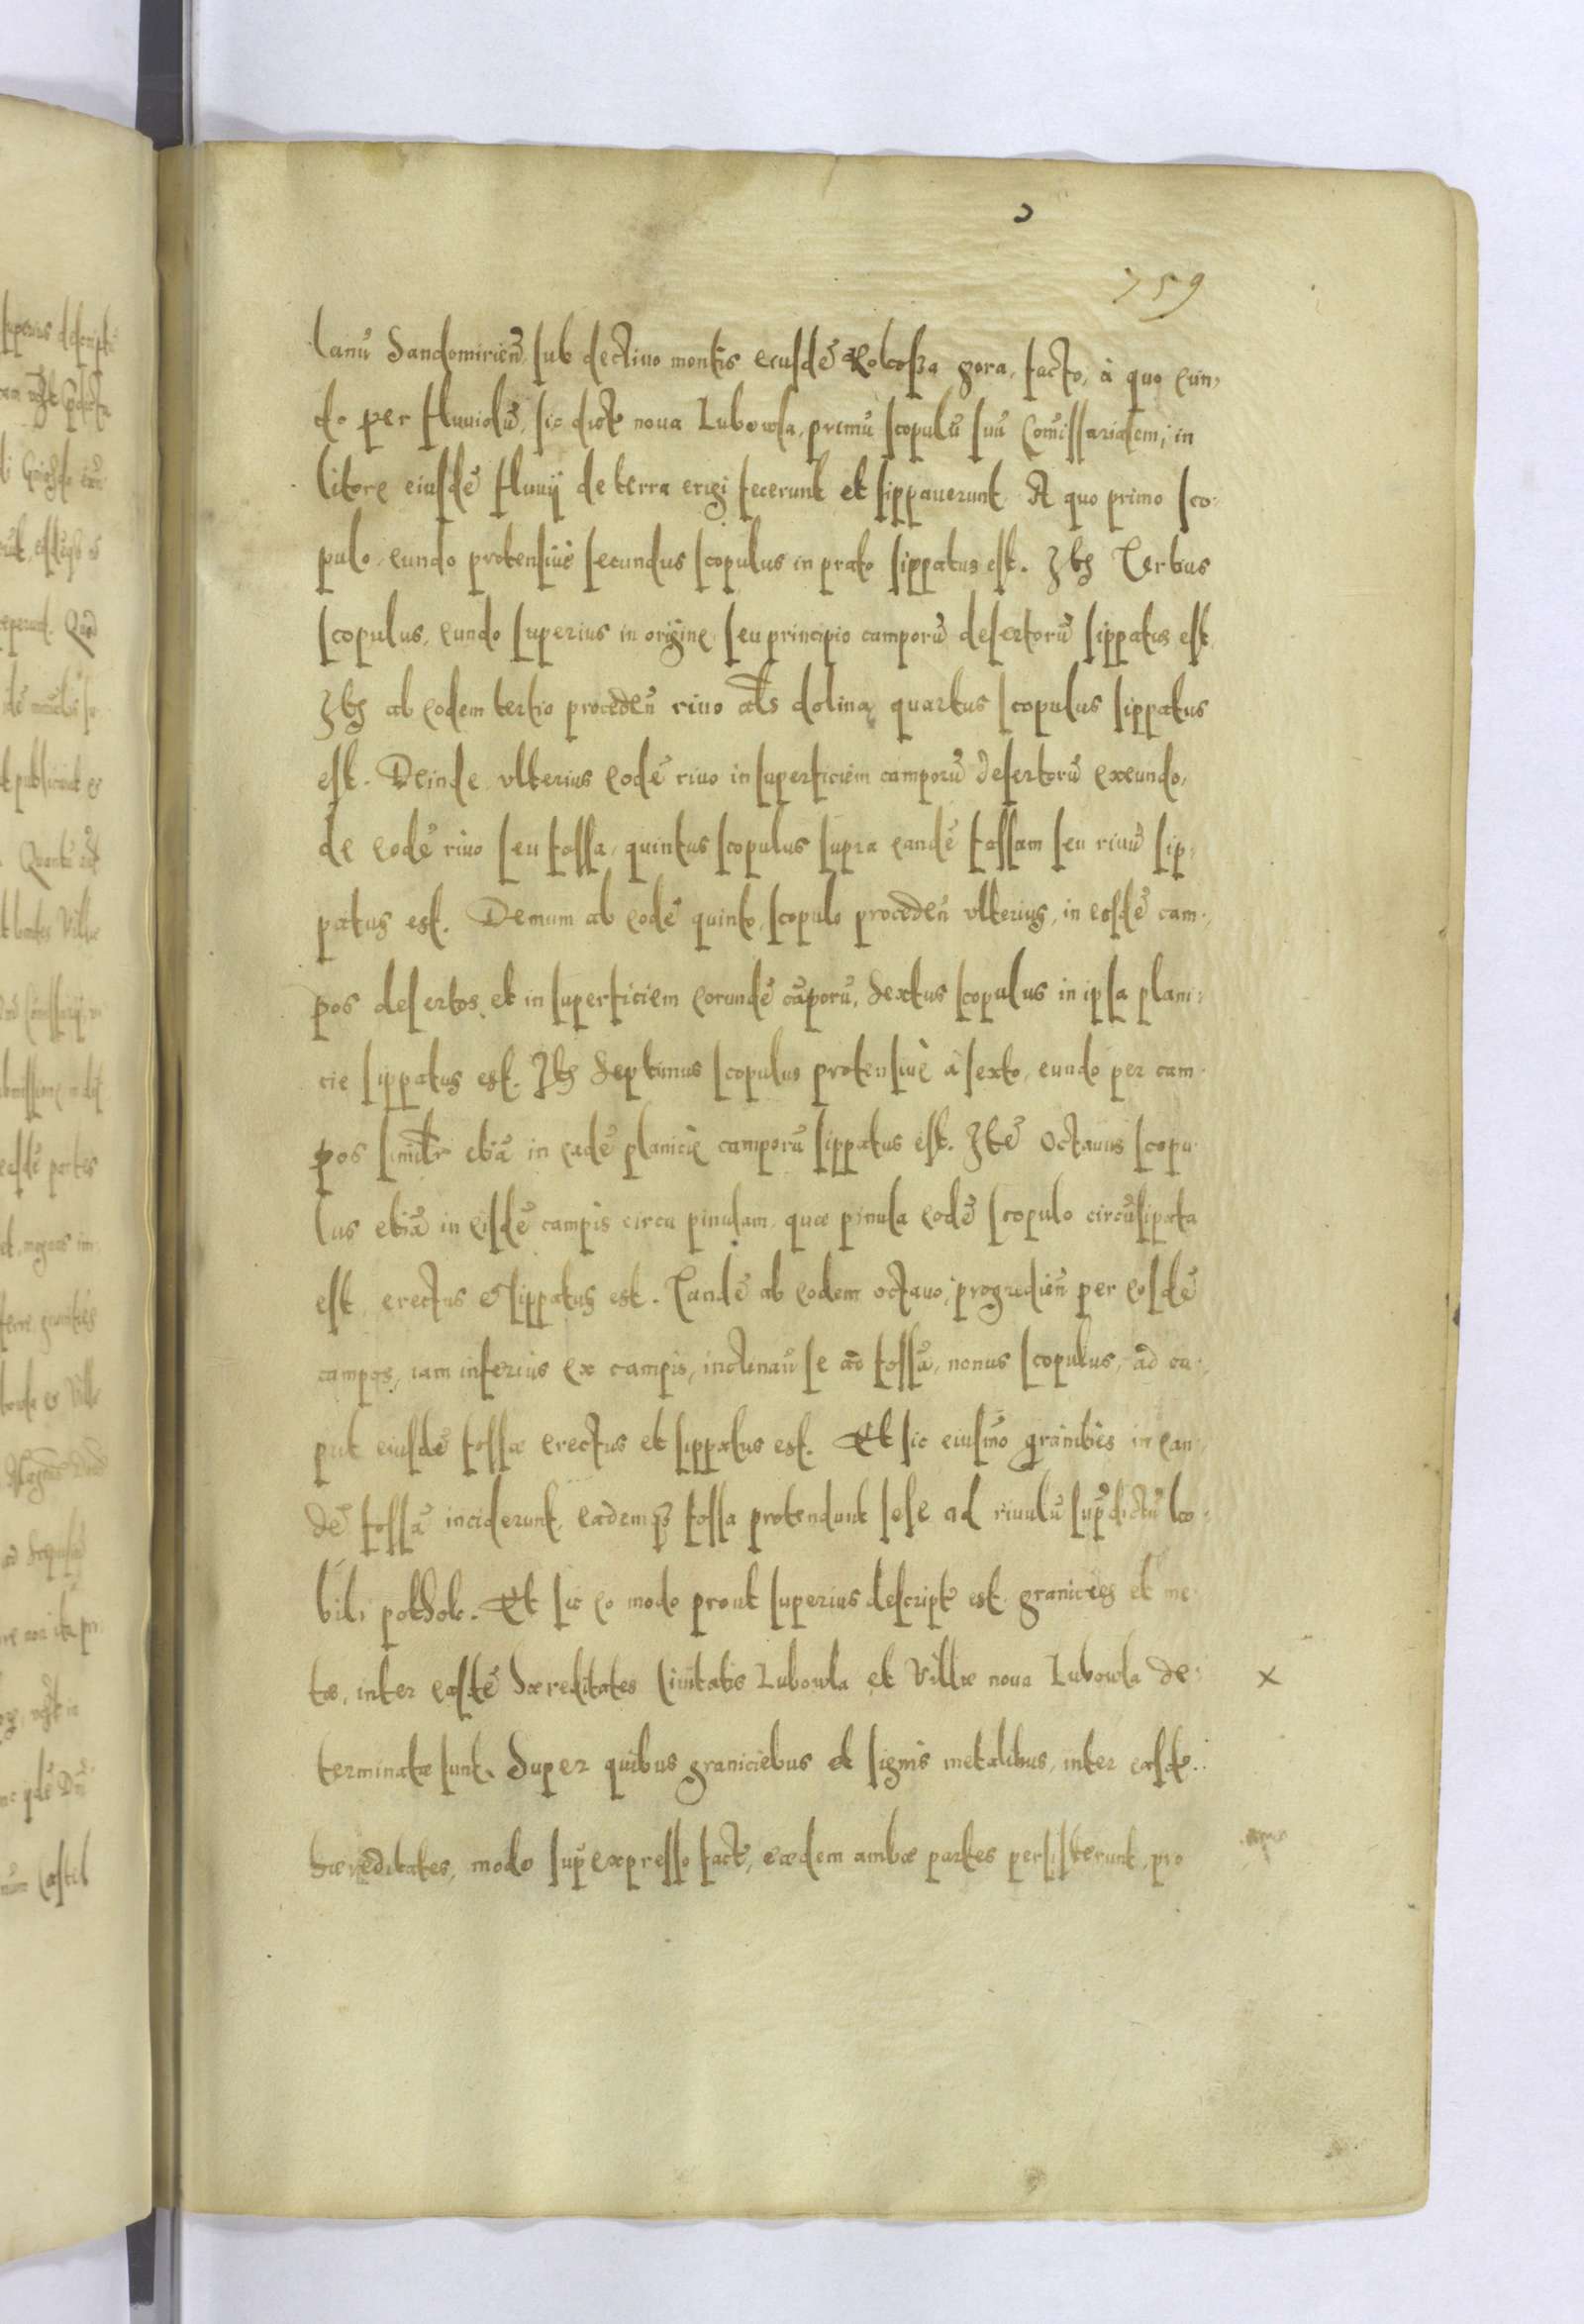 759
lanū Sandomirieñ sub declivo montis eiusdē gora, facto, à quo eun,
do per fluviolū, sic dict nova Lubowla, primū scopulū suū Comissarialem, in
litore eiusdē fluvij de terra erigi fecerunt et sippaverunt. A quo primo sco,
pulo, eundo protensivè secundus scopulus in prato sippatus est. Itē Tertius
scopulus, eundo superius in origine seu principio camporū desertorū sippatus est
Itē ab eodem tertio procedeñ rivo als dolina, quartus scopulus sippatus
est. Deinde ulterius eodē rivo in superficiem camporū desertorū exeundo,
de eodē rivo seu fossa, quintus scopulus supra eandē fossam seu rivū sip,
patus est. Demum ab eodē quinto, scopulo procedeñ ulterius, in eosdē cam,
pos desertos, et in superficiem eorundē cāporū, Sextus scopulus in ipsa plani,
cie sippatus est. Itē Septimus scopulus protensivè à sexto, eundo per cam,
pos similr etiā in eadē planicie camporū sippatus est. Itē Octavus scopu,
lus etiā in eisdē campis circa pinulam, quae pinula eodē scopulo circūsipata
est, erectus et sippatus est. Tandē ab eodem octavo, progredieñ per eosdē
campos, iam inferius ex campis, inclinañ se ad fossā, nonus scopulus, ad ca,
put eiusdē fossae erectus et sippatus est. Et sic eiusmō granities in ean,
dē fossā inciderunt, eademq3 fossa protendunt sese ad rivulū supdictū ko,
bili pothok. Et sic eo modo prout superius descript est granicies et me,
tae, inter easdē haereditates Civitatis Lubowla et Villae nova Lubowla de, x
terminatae sunt. Super quibus graniciebus et signis metalibus, inter easde.
haereditates, modo supexpresso fact, eaedem ambae partes persisterunt, pro